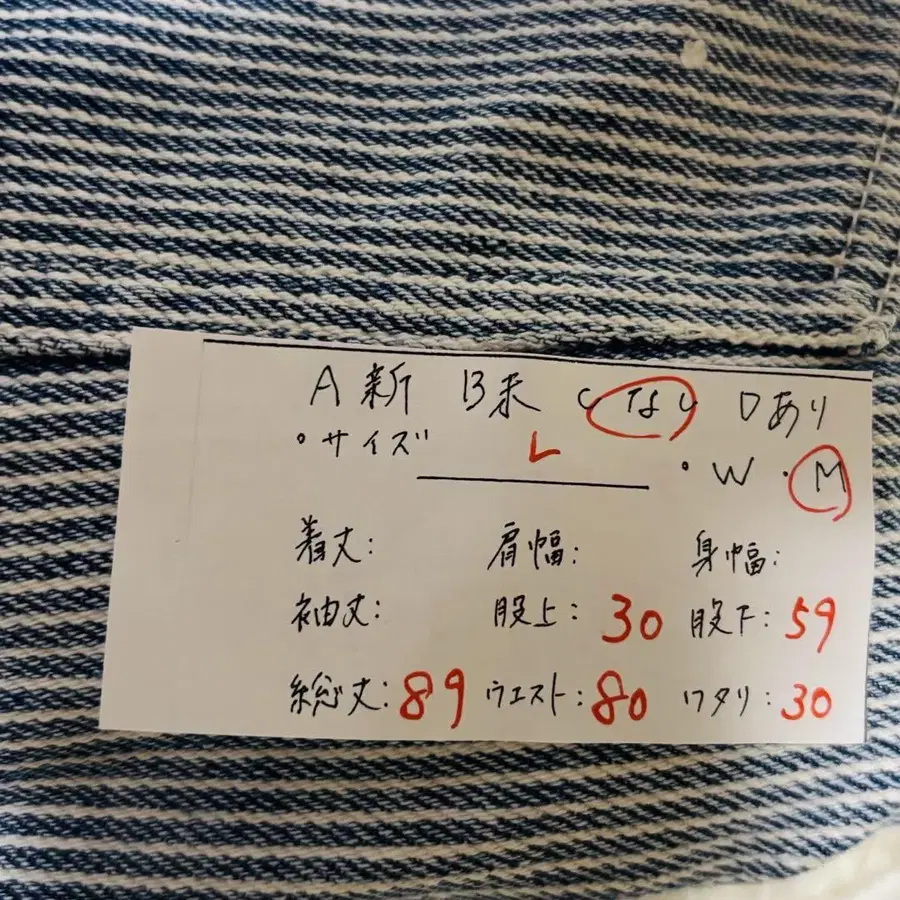 A 新 B未 C なし Dあり
・サイズ L ・W・M
着丈: 肩幅: 身幅:
袖丈: 股上: 30 股下: 59
総丈: 89 ウエスト: 80 ワタリ: 30